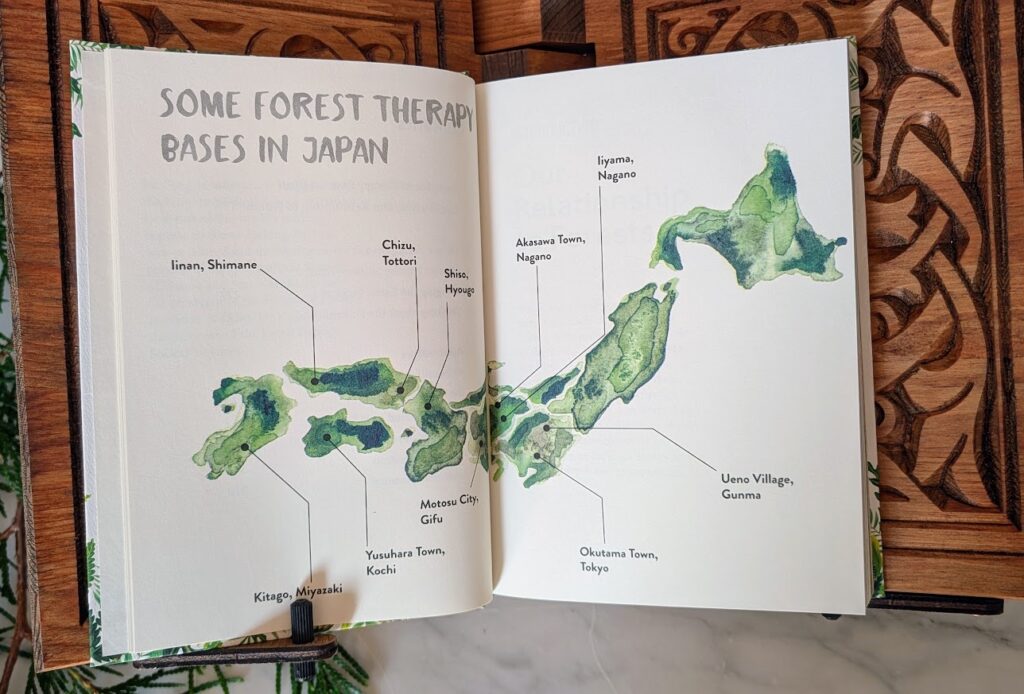 SOME FOREST THERAPY
BASES IN JAPAN
Iinan, Shimane
Chizu,
Tottori
Shiso,
Hyougo
Motosu City,
Gifu
Yusuhara Town,
Kochi
Kitago, Miyazaki
Iiyama,
Nagano
Akasawa Town,
Nagano
Ueno Village,
Gunma
Okutama Town,
Tokyo